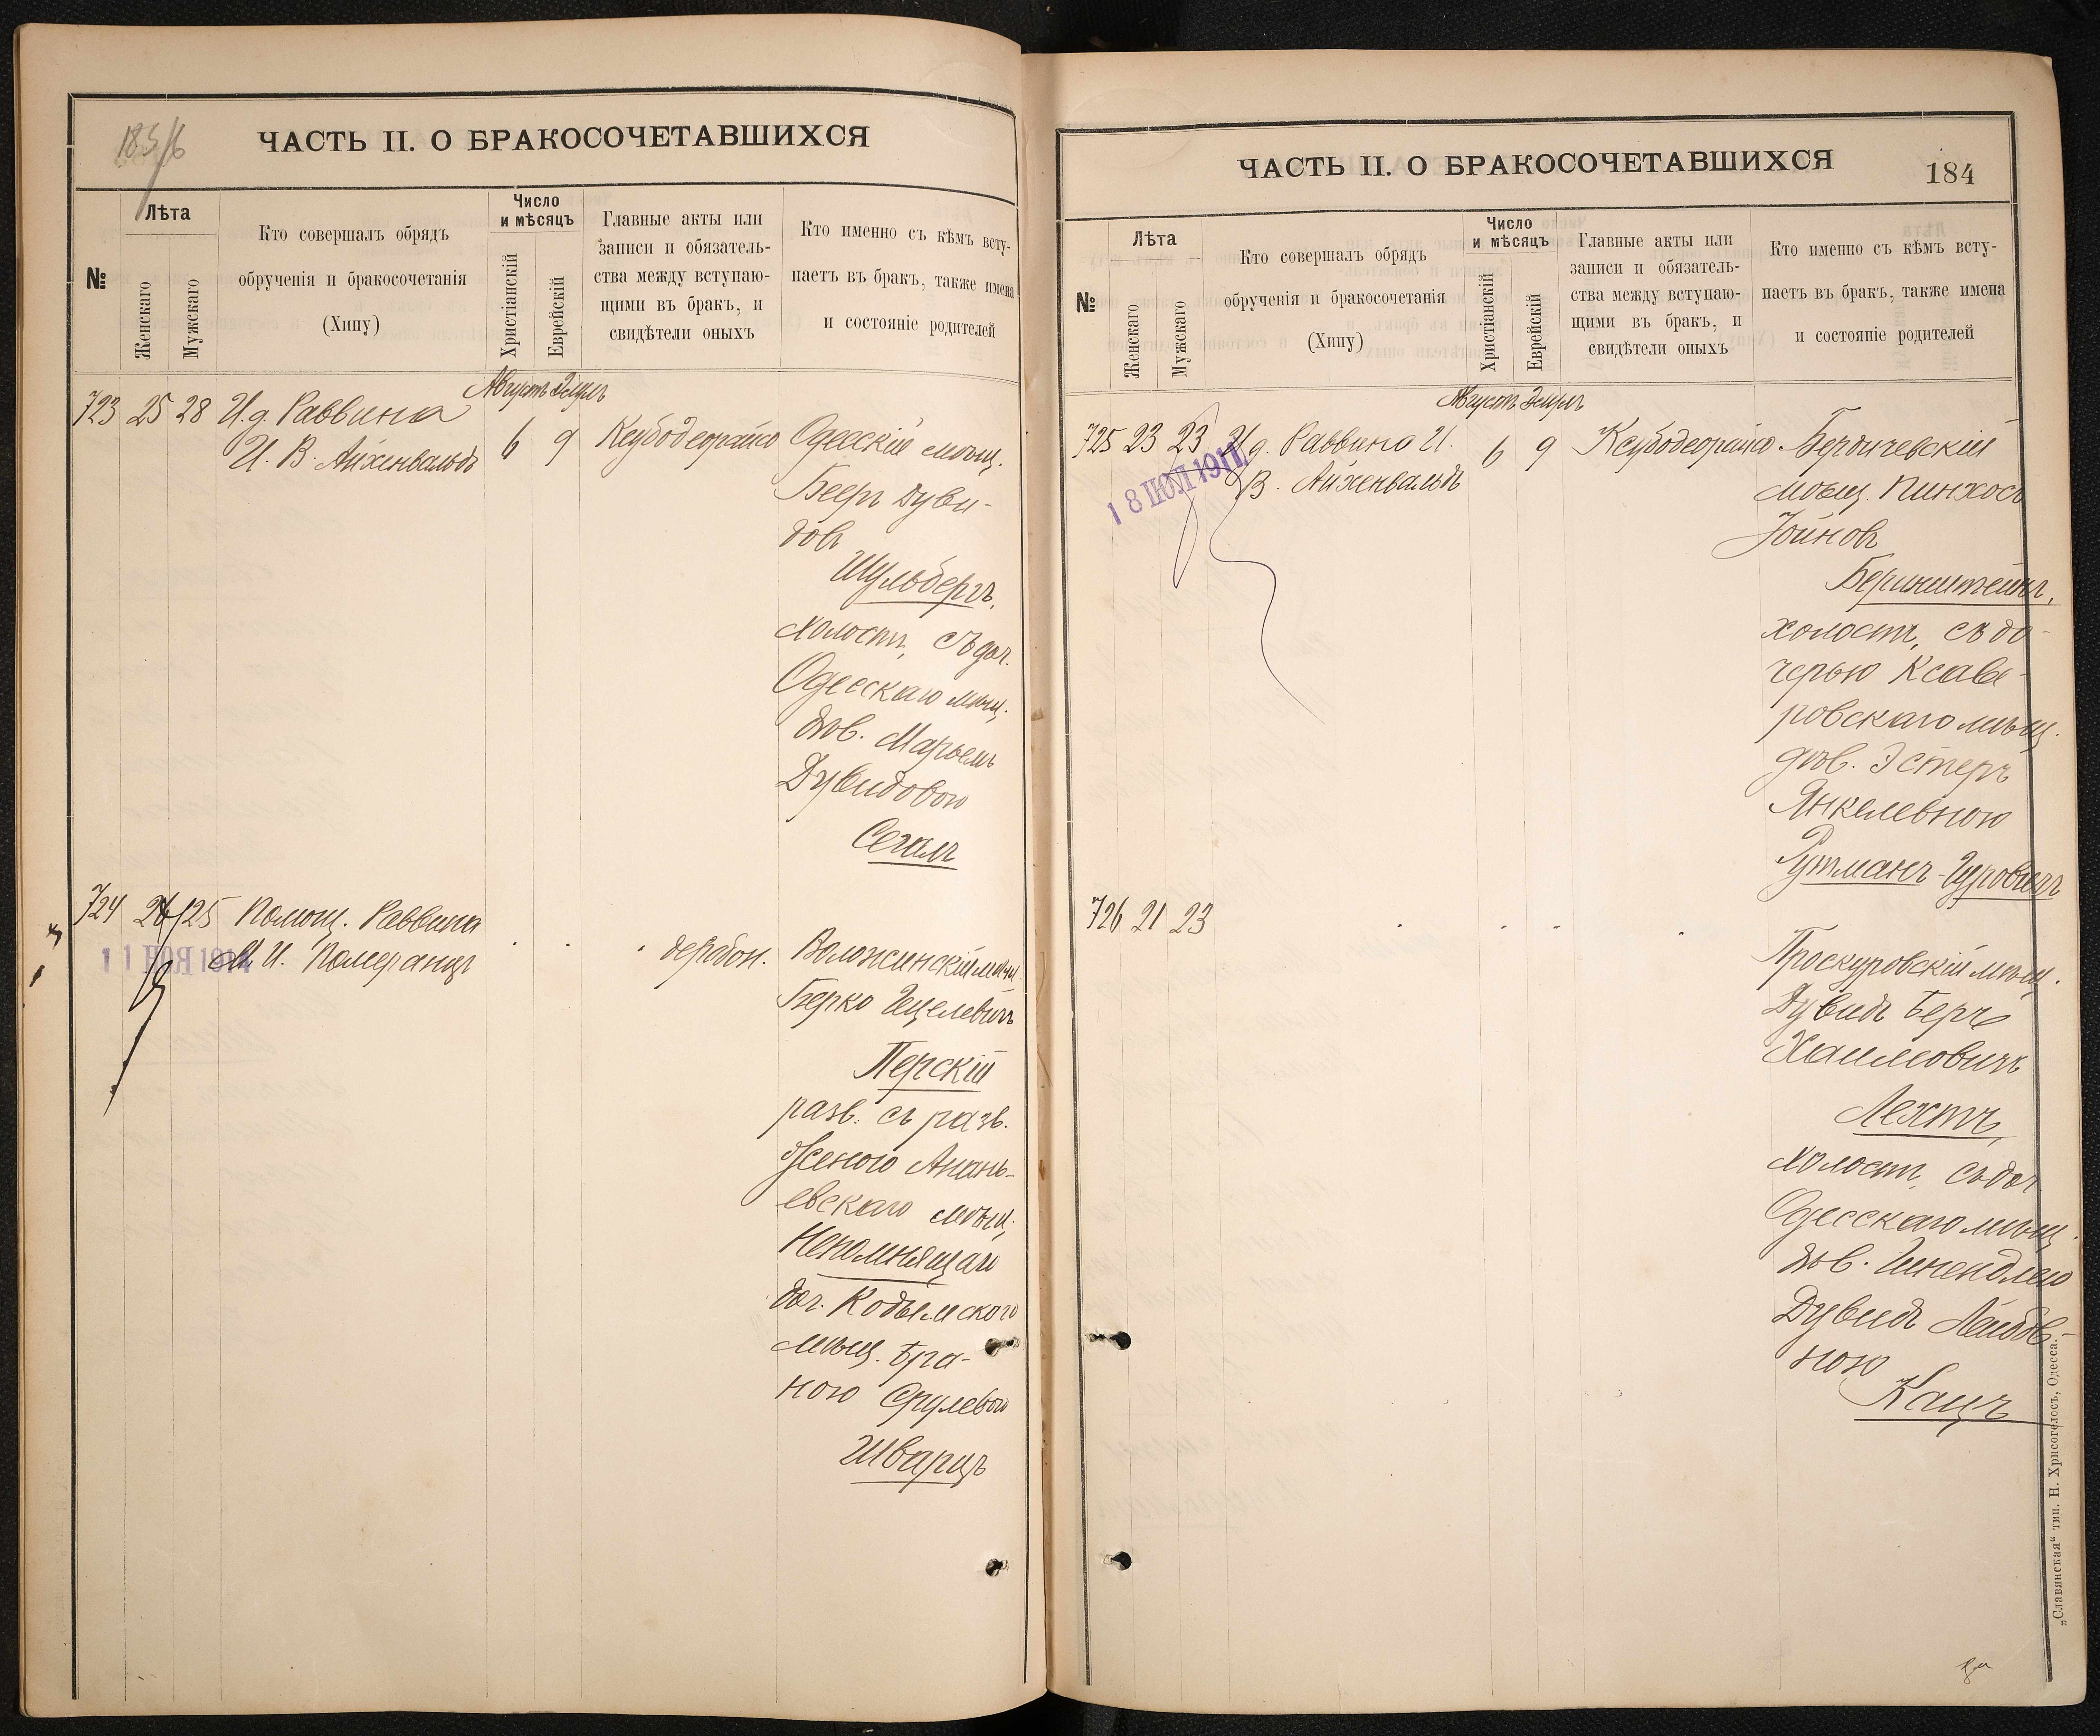 183/6
ЧАСТЬ II. О БРАКОСОЧЕТАВШИХСЯ
№
Лѣта
Женскаго
Мужскаго
Кто совершалъ обрядъ
обрученія и бракосочетанія
(Хипу)
Число
и мѣсяцъ
Христіанскій
Еврейскій
Главные акты или
записи и обязатель-
ства между вступаю-
щими въ бракъ, и
свидѣтели оныхъ
Кто именно съ кѣмъ всту-
паетъ въ бракъ, также имена
и состояніе родителей
Августъ Эмулъ
723 25 28 И.д. Раввина
И. В. Айхенвальдъ
6 9 Ксубодеорайсо
Одесскій мѣщ.
Бееръ Дуви-
довъ
Шульбергъ,
холостъ, съ доч.
Одесскаго мѣщ.
дѣв. Марьемъ
Дувидовою
Сегалъ
724 /25 Помощ. Раввина
М. И. Померанцъ
11 НОЯ 1914
дерабон.
Воложинскій мѣщ.
Берко Ицелевичъ
Перскій
разв. съ разв.
женою Анань-
евскаго мѣщ.
Непомнящаго
доч. Кодымского
мѣщ. Бра-
ною Срулевою
Шварцъ
ЧАСТЬ II. О БРАКОСОЧЕТАВШИХСЯ
184
№
Лѣта
Женскаго
Мужскаго
Кто совершалъ обрядъ
обрученія и бракосочетанія
(Хипу)
Число
и мѣсяцъ
Христіанскій
Еврейскій
Главные акты или
записи и обязатель-
ства между вступаю-
щими въ бракъ, и
свидѣтели оныхъ
Кто именно съ кѣмъ всту-
паетъ въ бракъ, также имена
и состояніе родителей
Августъ Эмулъ
725 23 23 И.д. Раввина И.
В. Айхенвальдъ
6 9 Ксубодеорайсо
Бердичевскій
мѣщ. Пинхосъ
Іойновъ
Беринштейнъ,
холостъ, съ до-
черью Ксаве-
ровскаго мѣщ.
дѣв. Эстеръ
Янкелевною
Рутманъ-Гуровичъ
726 21 23
Проскуровскій мѣщ.
Дувидъ Беръ
Хаимовичъ
Лехтъ,
холостъ, съ доч.
Одесскаго мѣщ.
дѣв. Шнендлею
Дувидъ Лейбов-
ною
Кацъ
„Славянская“ тип. Н. Хрисогелосъ, Одесса.